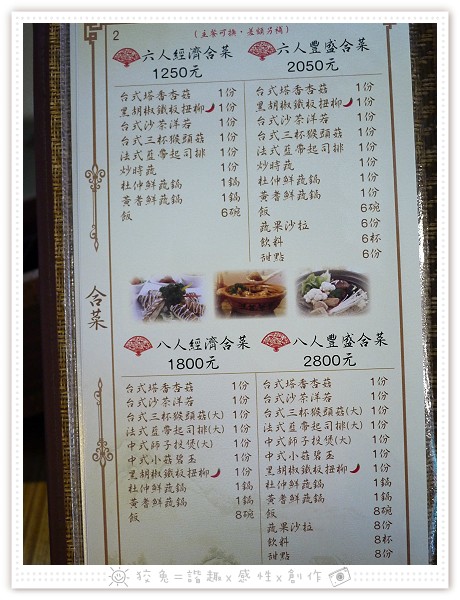 2
(主餐可換，差額另補)
六人經濟合菜
1250元
台式塔香杏菇 1份
黑胡椒鐵板扭柳 1份
台式沙茶洋若 1份
台式三杯猴頭菇 1份
法式藍帶起司排 1份
炒時蔬 1份
杜仲鮮蔬鍋 1鍋
黃耆鮮蔬鍋 1鍋
飯 6碗
六人豐盛合菜
2050元
台式塔香杏菇 1份
黑胡椒鐵板扭柳 1份
台式沙茶洋若 1份
台式三杯猴頭菇 1份
法式藍帶起司排 1份
炒時蔬 1份
杜仲鮮蔬鍋 1鍋
黃耆鮮蔬鍋 1鍋
飯 6碗
蔬果沙拉 6份
飲料 6杯
甜點 6份
合菜
八人經濟合菜
1800元
台式塔香杏菇 1份
台式沙茶洋若 1份
台式三杯猴頭菇(大) 1份
法式藍帶起司排(大) 1份
中式師子投煲(大) 1份
中式小菇碧玉 1份
黑胡椒鐵板扭柳 1份
杜仲鮮蔬鍋 1鍋
黃耆鮮蔬鍋 1鍋
飯 8碗
八人豐盛合菜
2800元
台式塔香杏菇 1份
台式沙茶洋若 1份
台式三杯猴頭菇(大) 1份
法式藍帶起司排(大) 1份
中式師子投煲(大) 1份
中式小菇碧玉 1份
黑胡椒鐵板扭柳 1份
杜仲鮮蔬鍋 1鍋
黃耆鮮蔬鍋 1鍋
飯 8碗
蔬果沙拉 8份
飲料 8杯
甜點 8份
狡兔=諧趣x感性x創作